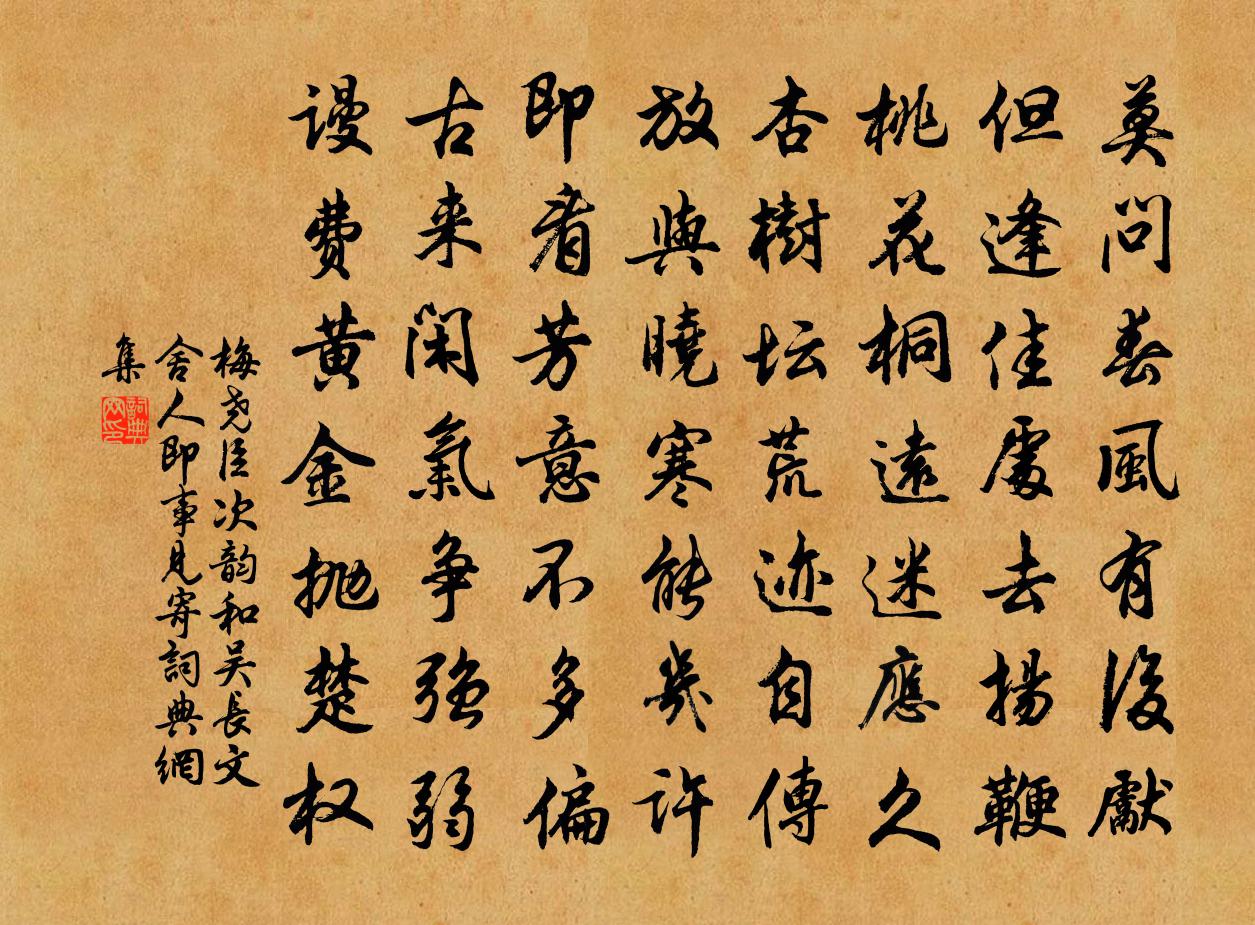 莫問春風有後獻
但逢佳處去揚鞭
桃花桐遠迷應久
杏樹坛荒迹自傳
放與曉寒能幾許
即看芳意不多偏
古来閑氣争强弱
谩費黄金抛楚权
梅尧臣次韵和吴長文
舍人即事見寄詞典網
集
詞典
网印